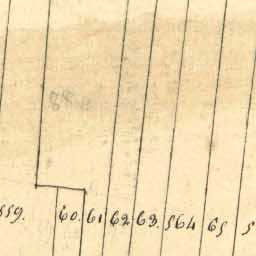 559. 60. 61 62 63. 564 65 5